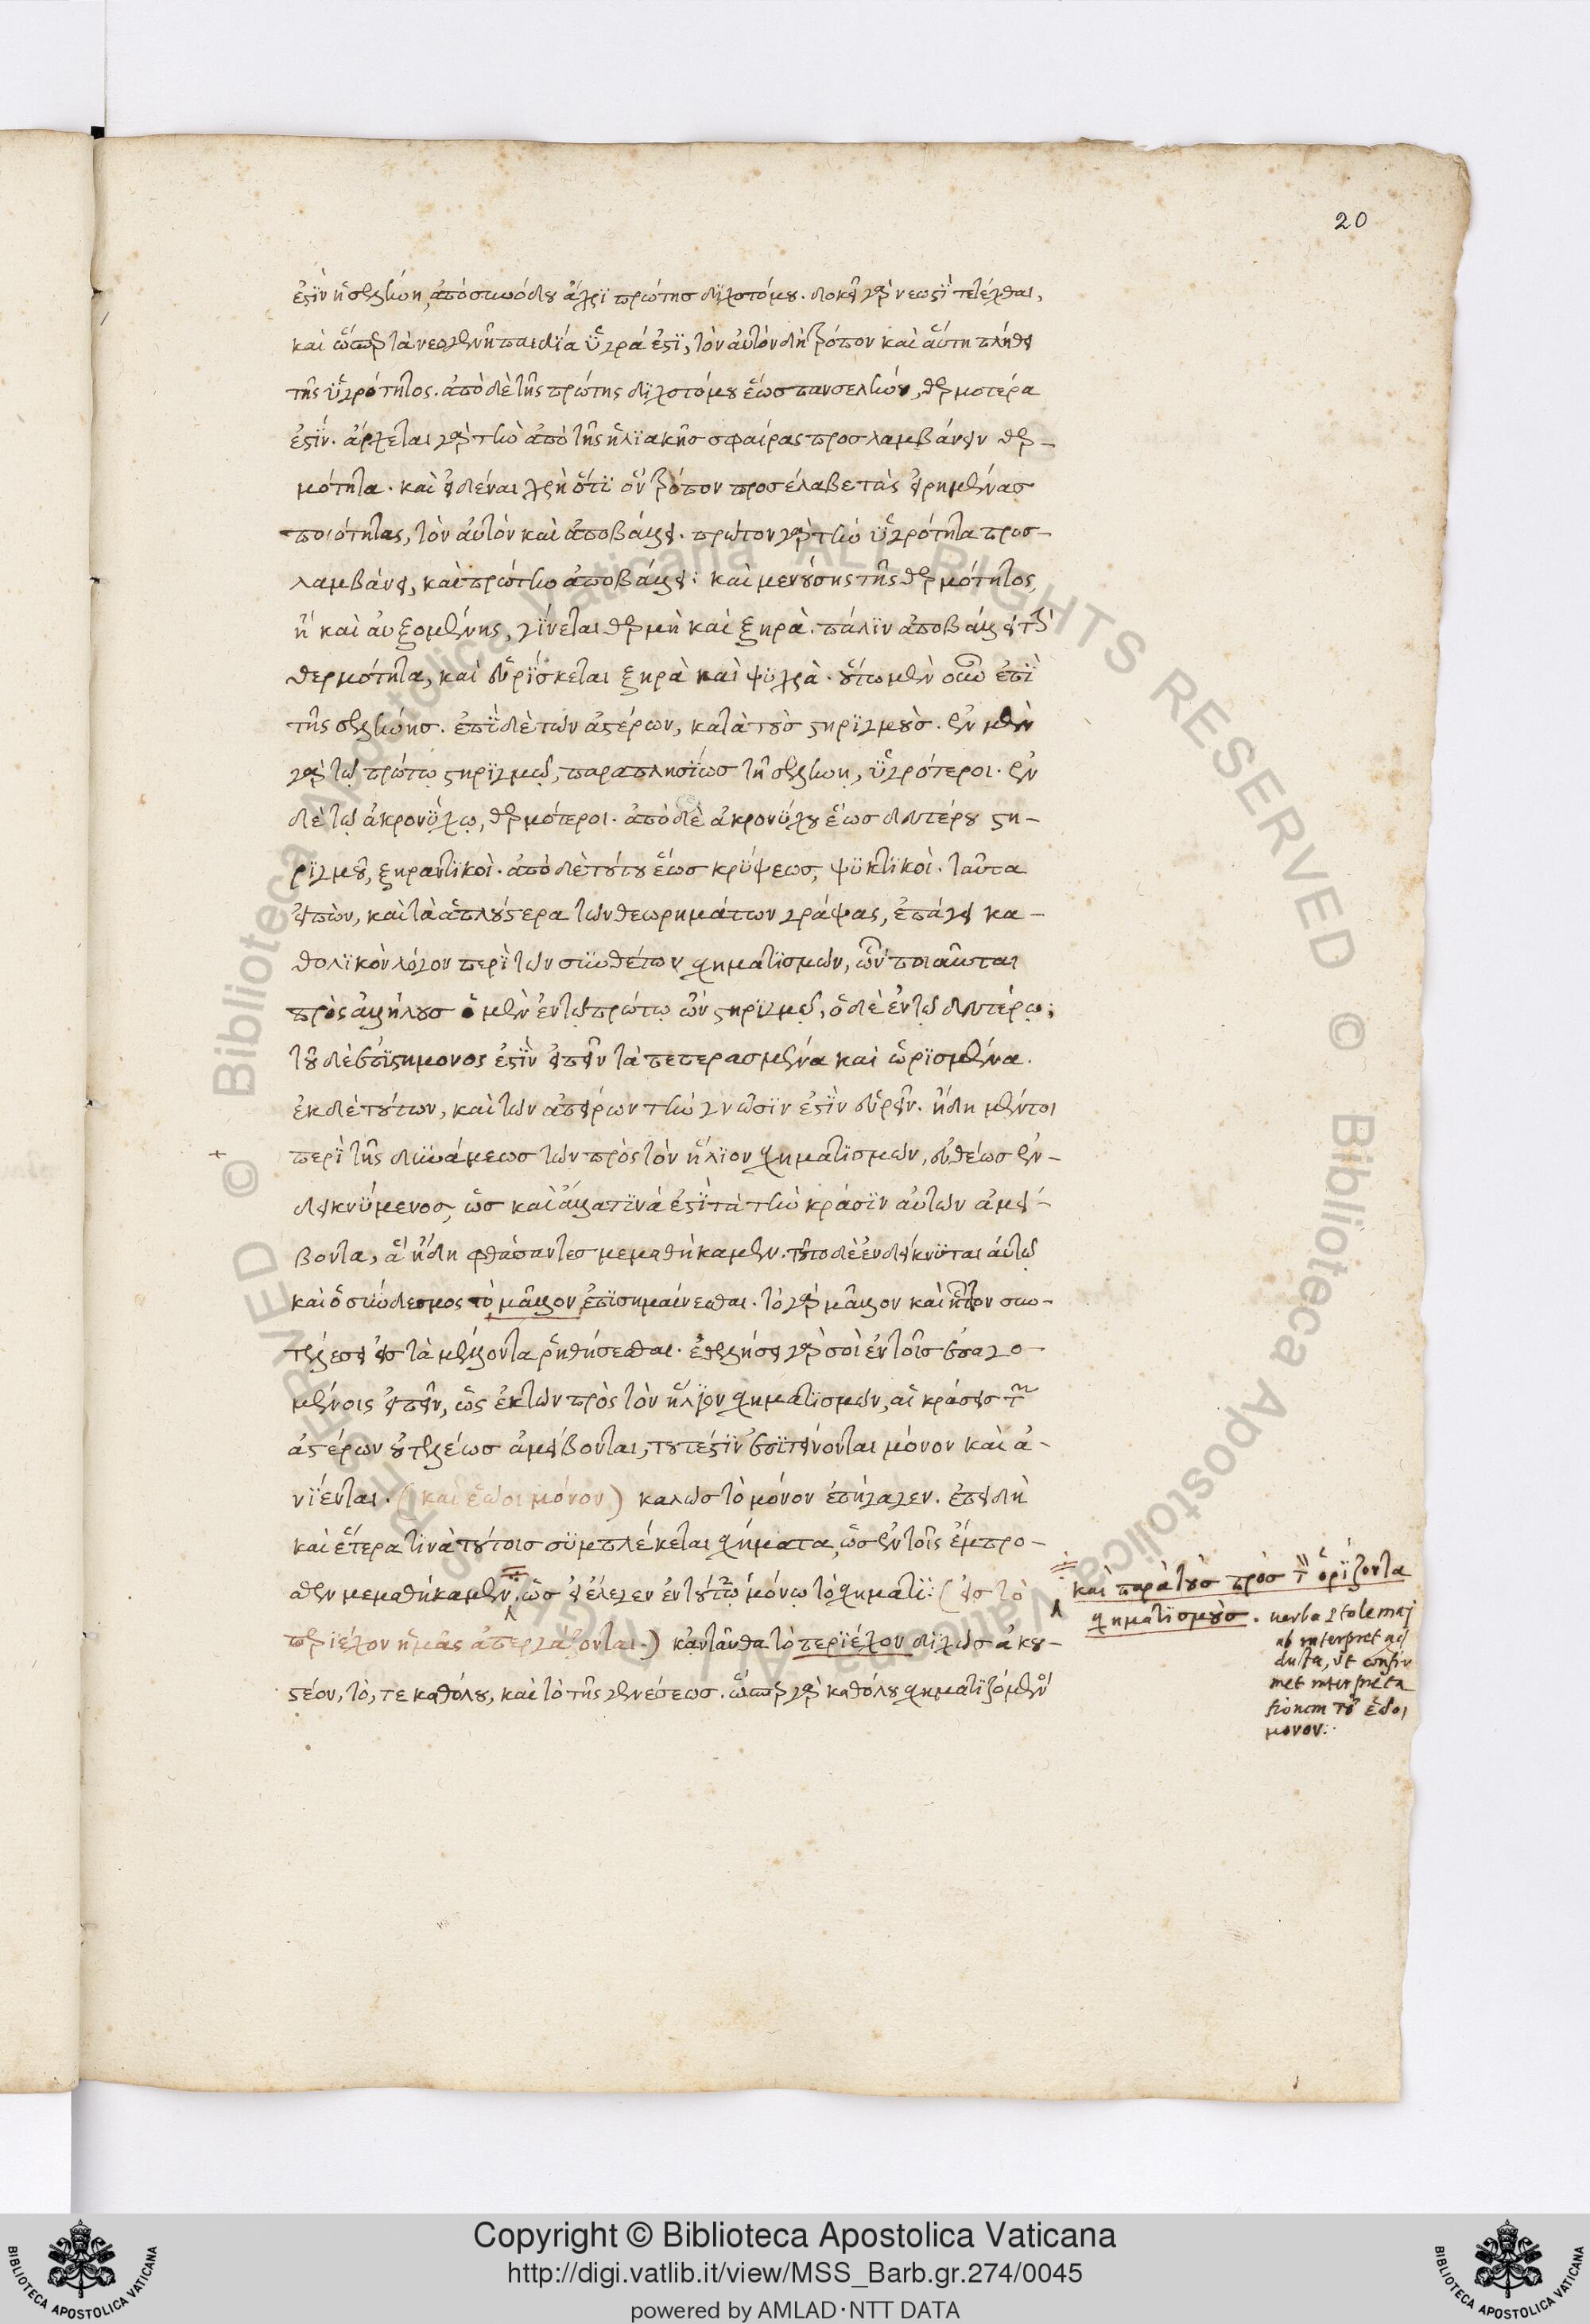 20
ἐστὶν ἡ σελήνη, ἀπὸ συνόδου ἄχρι πρώτης διχοτόμου. δοκεῖ γὰρ νεωστὶ τετέχθαι,
καὶ ὥσπερ τὰ νεογενῆ παιδία ὑγρά ἐστι, τὸν αὐτὸν δὴ τρόπον καὶ αὕτη πλήθει
τῆς ὑγρότητος. ἀπὸ δὲ τῆς πρώτης διχοτόμου ἕως πανσελήνου, θερμοτέρα
ἐστίν. ἄρχεται γὰρ τὴν ἀπὸ τῆς ἡλιακῆς σφαίρας προσλαμβάνειν θερ-
μότητα. καὶ εἰδέναι χρὴ ὅτι ὃν τρόπον προσέλαβε τὰς εἰρημένας
ποιότητας, τὸν αὐτὸν καὶ ἀποβάλλει. πρῶτον γὰρ τὴν ὑγρότητα προσ-
λαμβάνει, καὶ πρώτην ἀποβάλλει: καὶ μενούσης τῆς θερμότητος,
ἢ καὶ αὐξομένης, γίνεται θερμὴ καὶ ξηρὰ. πάλιν ἀποβάλλει τὴν
θερμότητα, καὶ εὑρίσκεται ξηρὰ καὶ ψυχρὰ. οὕτω μὲν οὖν ἐπὶ
τῆς σελήνης. ἐπὶ δὲ τῶν ἀστέρων, κατὰ τοὺς στηριγμοὺς. ἐν μὲν
γὰρ τῷ πρώτῳ στηριγμῷ, παραπλησίως τῇ σελήνῃ, ὑγρότεροι. ἐν
δὲ τῷ ἀκρονύχῳ, θερμότεροι. ἀπὸ δὲ ἀκρονύχου ἕως δευτέρου στη-
ριγμοῦ, ξηραντικοὶ. ἀπὸ δὲ τούτου ἕως κρύψεως, ψυκτικοὶ. ταῦτα
εἰπὼν, καὶ τὰ ἁπλούστερα τῶν θεωρημάτων γράψας, ἐπάγει κα-
θολικὸν λόγον περὶ τῶν συνθέτων σχηματισμῶν, ὧν ποιοῦνται
πρὸς ἀλλήλους ὁ μὲν ἐν τῷ πρώτῳ ὢν στηριγμῷ, ὁ δὲ ἐν τῷ δευτέρῳ:
τοῦ δὲ ἐπιστήμονος ἐστὶν εἰπεῖν τὰ πεπερασμένα καὶ ὡρισμένα.
ἐκ δὲ τούτων, καὶ τῶν ἀπείρων τὴν γνῶσιν ἐστὶν εὑρεῖν. ἤδη μέντοι
περὶ τῆς δυνάμεως τῶν πρὸς τὸν ἥλιον σχηματισμῶν, εὐθέως ἐν-
δεικνύμενος, ὡς καὶ ἄλλα τινά ἐστι τὰ τὴν κρᾶσιν αὐτῶν ἀμεί-
βοντα, ἃ ἤδη φθάσαντες μεμαθήκαμεν. τοῦτο δὲ ἐνδείκνυται αὐτῷ
καὶ ὁ σύνδεσμος τὸ μᾶλλον ἐπισημαίνεσθαι. τὸ γὰρ μᾶλλον καὶ ἧττον συν-
τελέσει εἰς τὰ μέλλοντα ῥηθήσεσθαι. ἐθελήσει γὰρ σοὶ ἐν τοῖς ἐπαγο-
μένοις εἰπεῖν, ὡς ἐκ τῶν πρὸς τὸν ἥλιον σχηματισμῶν, αἱ κράσεις τῶν
ἀστέρων οὐ τελείως ἀμείβονται, τουτέστιν ἐπιτείνονται μόνον καὶ ἀ-
νίενται. (καὶ ἑῷοι μόνον) καλῶς τὸ μόνον ἐπήγαγεν. ἐπειδὴ
καὶ ἕτερα τινὰ τούτοις συμπλέκεται σχήματα, ὡς ἐν τοῖς ἔμπρο-
σθεν μεμαθήκαμεν, ὡς εἰ ἔλεγεν ἐν τούτῳ μόνῳ τῷ σχήματι: (εἰς τὸ
περιέχον ἡμᾶς ἀπεργάζονται.) κἀνταῦθα τὸ περιέχον διχῶς ἀκου-
στέον, τό, τε καθόλου, καὶ τὸ τῆς γενέσεως. ὥσπερ γὰρ καθόλου σχηματιζόμενοι
καὶ παρὰ τοὺς πρὸς τὸν ὁρίζοντα
σχηματισμοὺς. uerba Ptolemaj
ab interpret ad
ducta, ut confir
met interpreta
tionem τοῦ ἑῷοι
μονον:
Copyright © Biblioteca Apostolica Vaticana
http://digi.vatlib.it/view/MSS_Barb.gr.274/0045
powered by AMLAD·NTT DATA